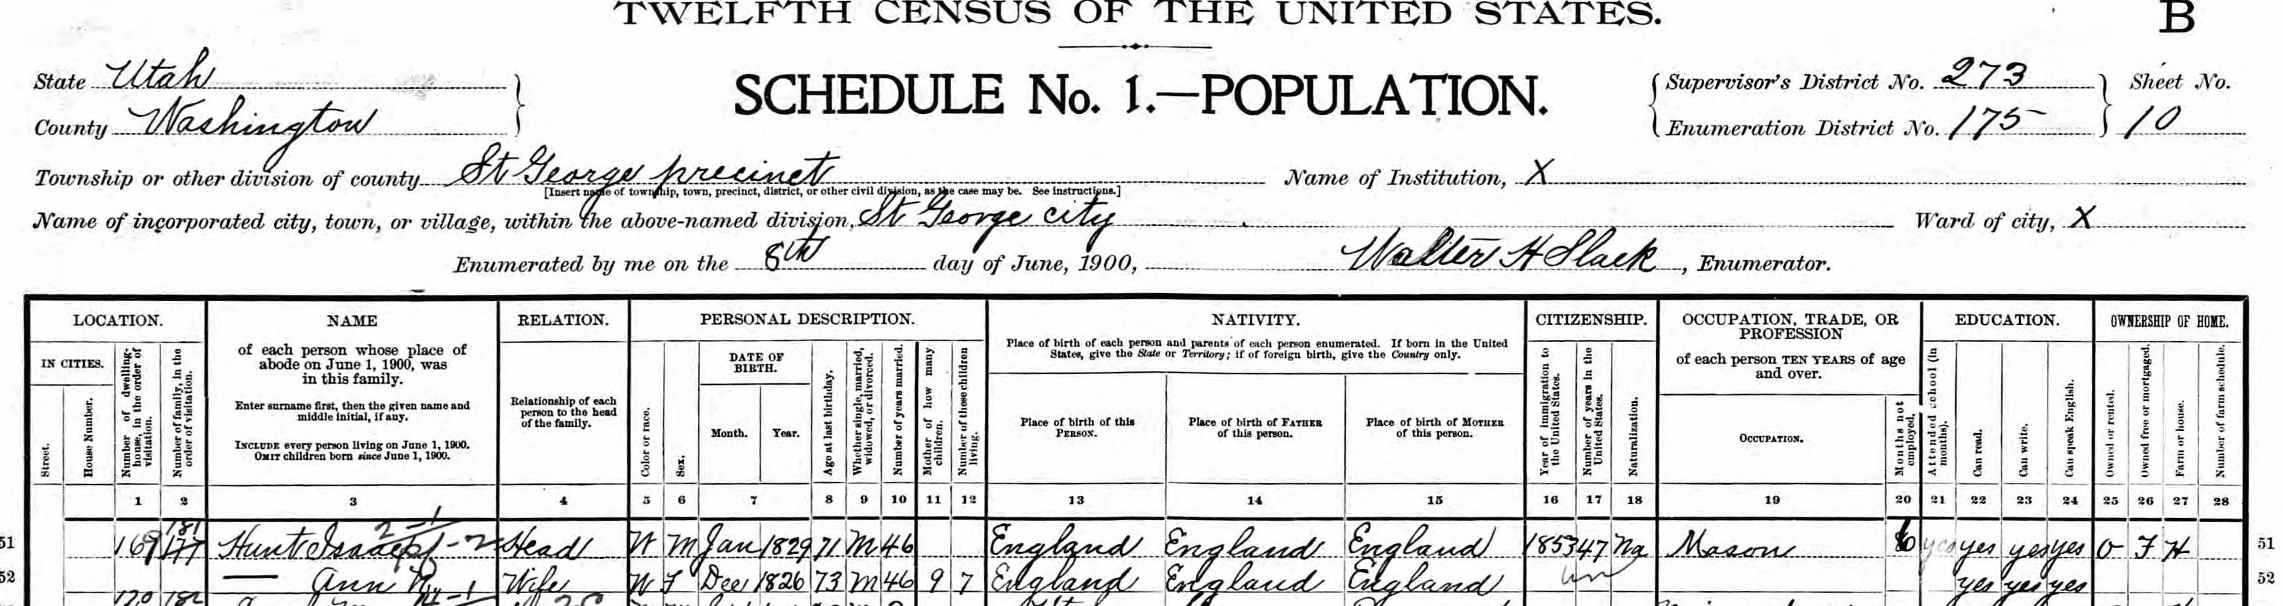 TWELFTH CENSUS OF THE UNITED STATES.
B
State Utah
County Washington
SCHEDULE No. 1.—POPULATION.
Supervisor's District No. 273
Enumeration District No. 175
Sheet No.
10
Township or other division of county St George precinct
[Insert name of township, town, precinct, district, or other civil division, as the case may be. See instructions.]
Name of Institution, X
Name of incorporated city, town, or village, within the above-named division, St George city
Ward of city, X
Enumerated by me on the 8th day of June, 1900, Walter H Slack, Enumerator.
LOCATION.
IN CITIES.
Street.
House Number.
Number of dwelling-house, in the order of visitation.
Number of family, in the order of visitation.
NAME
of each person whose place of
abode on June 1, 1900, was
in this family.
Enter surname first, then the given name and
middle initial, if any.
INCLUDE every person living on June 1, 1900.
OMIT children born since June 1, 1900.
RELATION.
Relationship of each
person to the head
of the family.
PERSONAL DESCRIPTION.
Color or race.
Sex.
DATE OF
BIRTH.
Month. Year.
Age at last birthday.
Whether single, married, widowed, or divorced.
Number of years married.
Mother of how many children.
Number of these children living.
NATIVITY.
Place of birth of each person and parents of each person enumerated. If born in the United
States, give the State or Territory; if of foreign birth, give the Country only.
Place of birth of this
PERSON.
Place of birth of FATHER
of this person.
Place of birth of MOTHER
of this person.
CITIZENSHIP.
Year of immigration to the United States.
Number of years in the United States.
Naturalization.
OCCUPATION, TRADE, OR
PROFESSION
of each person TEN YEARS of age
and over.
OCCUPATION.
Months not employed.
EDUCATION.
Attended school (in months).
Can read.
Can write.
Can speak English.
OWNERSHIP OF HOME.
Owned or rented.
Owned free or mortgaged.
Farm or house.
Number of farm schedule.
1 2 3 4 5 6 7 8 9 10 11 12 13 14 15 16 17 18 19 20 21 22 23 24 25 26 27 28
51 169 181 Hunt Isaac Head W M Jan 1829 71 M 46 England England England 1853 47 Na Mason 6 yes yes yes O F H 51
52 — Ann Wife W F Dec 1826 73 M 46 9 7 England England England un yes yes yes 52
170 182